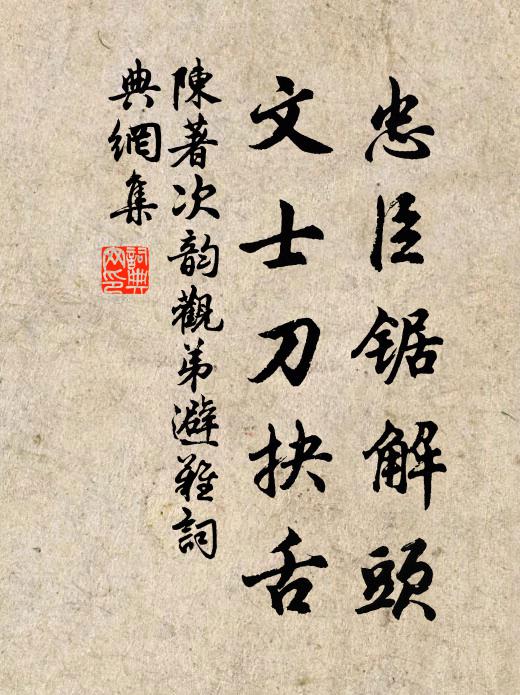 忠臣锯解頭
文士刀抉舌
陳著次韵觀弟避難詞
典網集
詞典